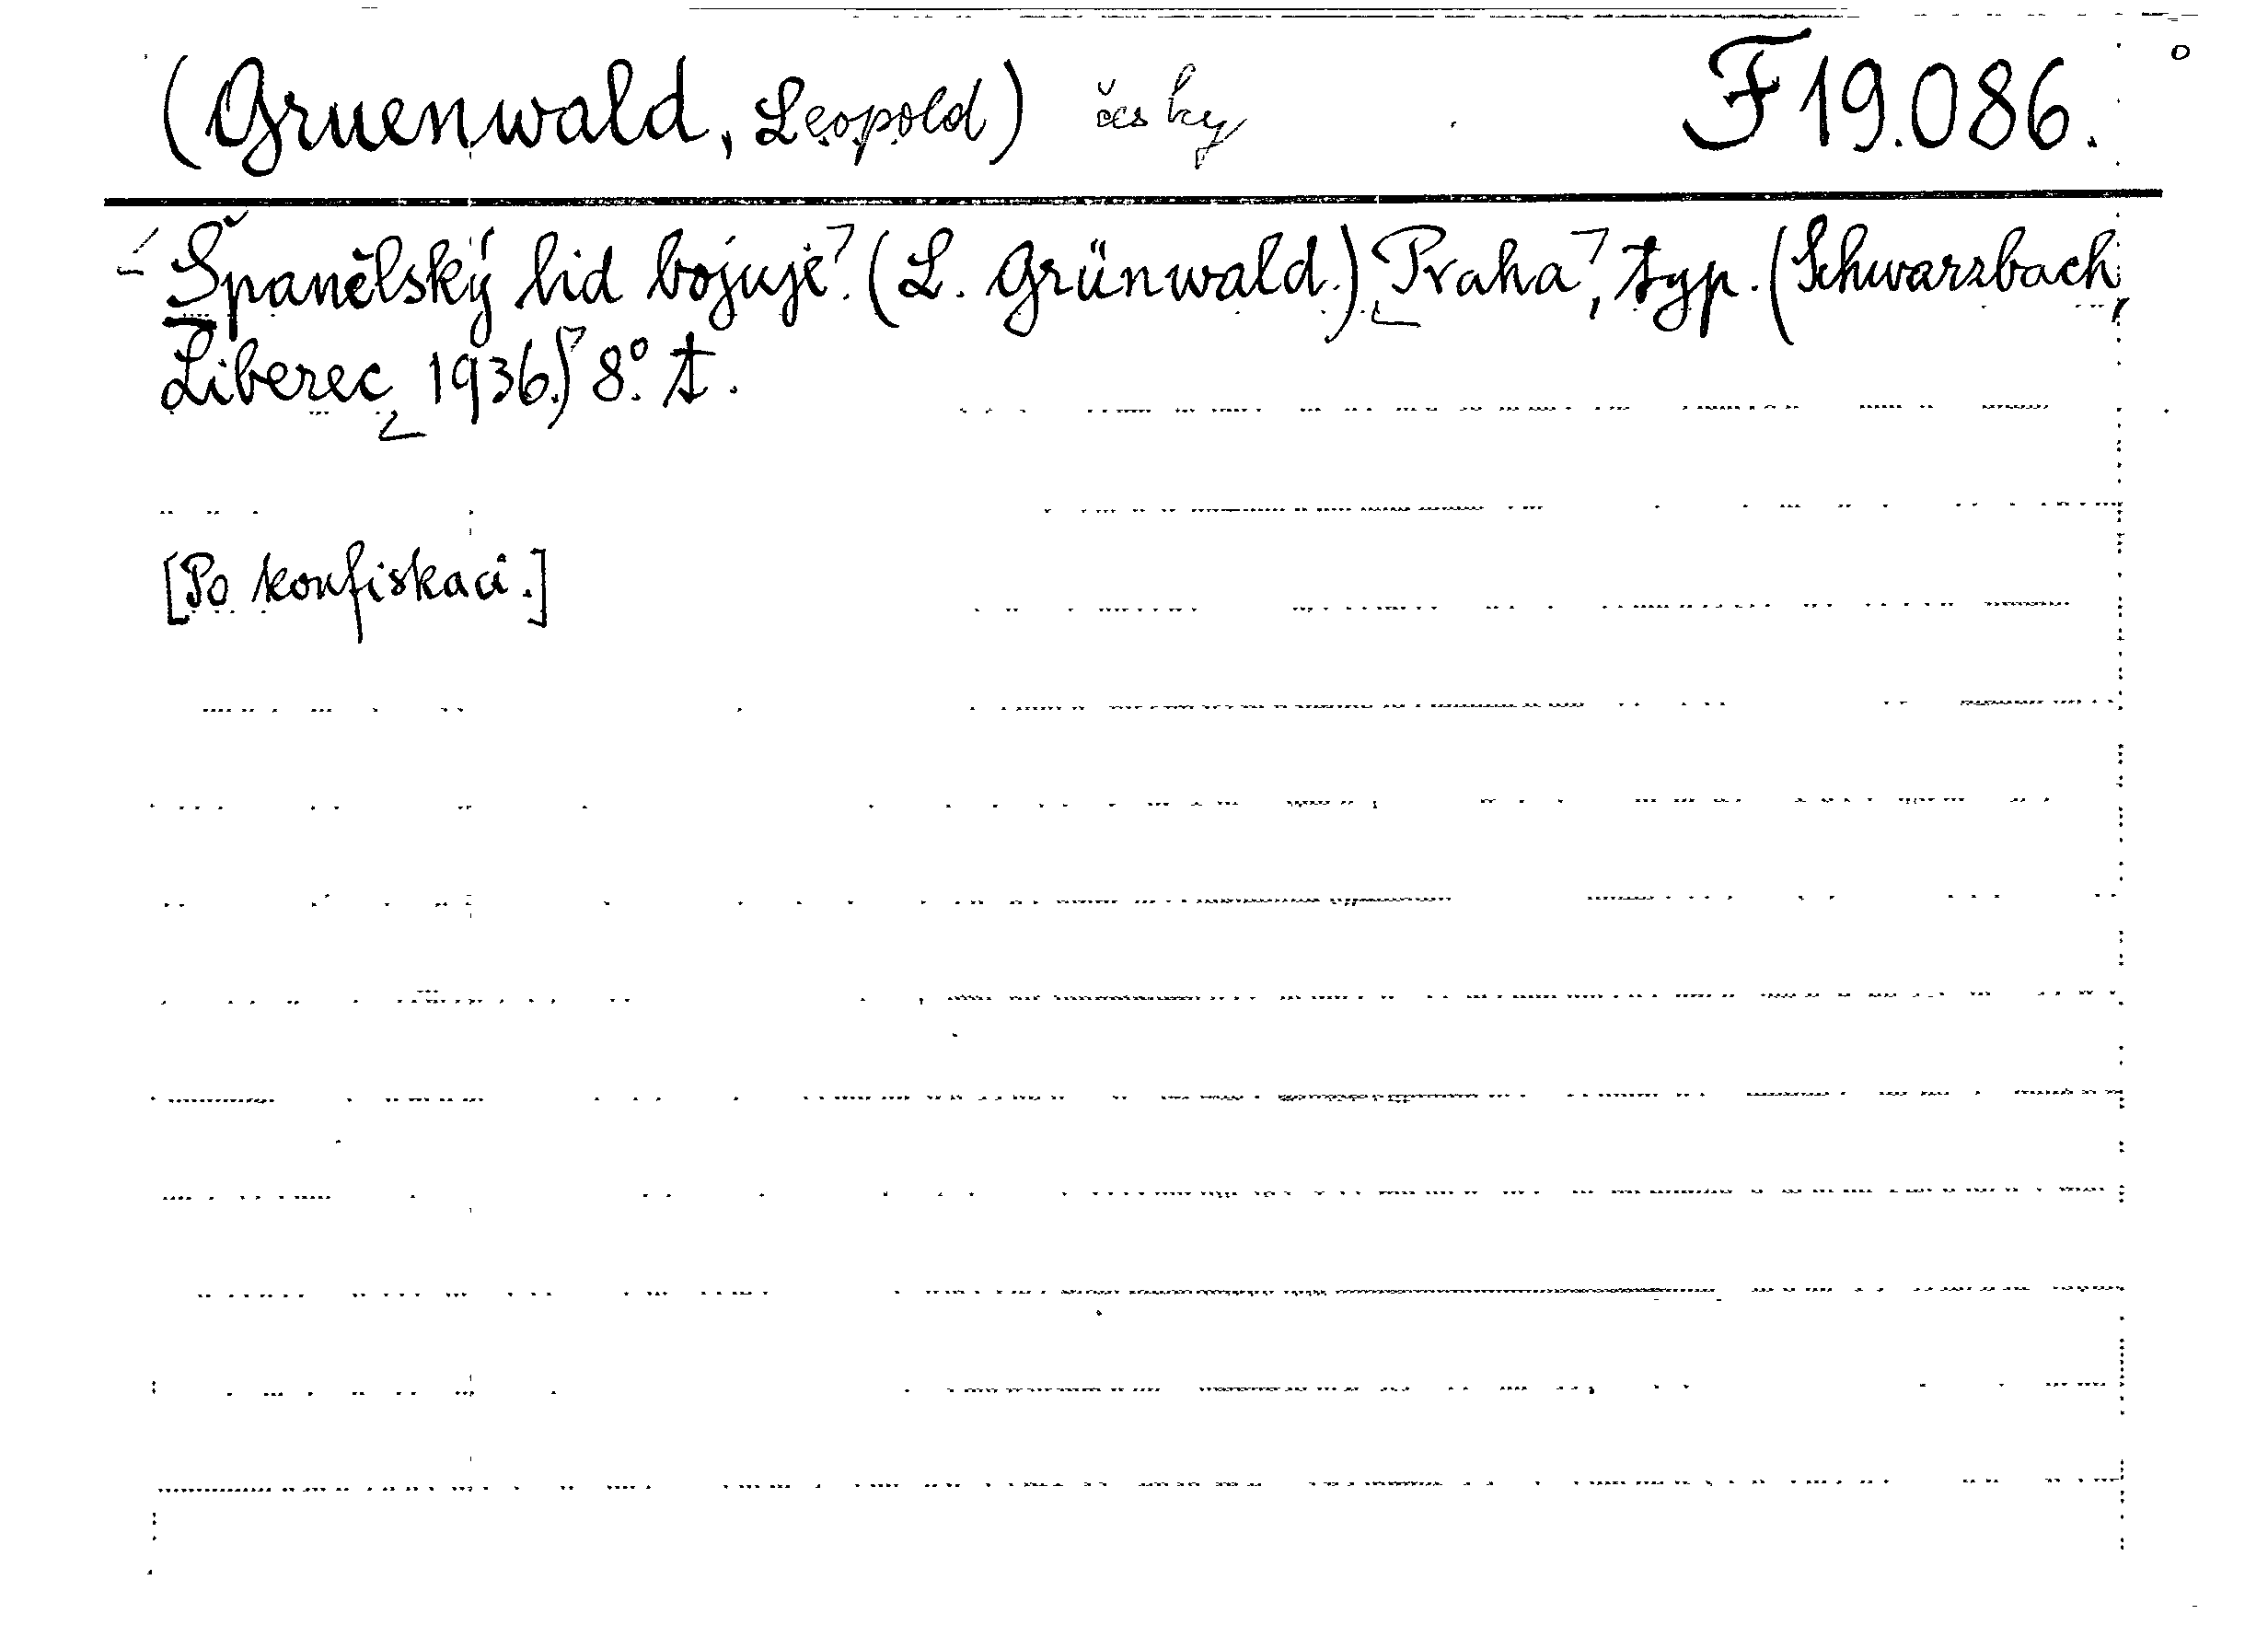 (Gruenwald, Leopold) česky F 19.086.
Španělský lid bojuje. (L. Grünwald.) Praha, typ. (Schwarzbach,
Liberec 1936.) 8°. t.
[Po konfiskaci.]